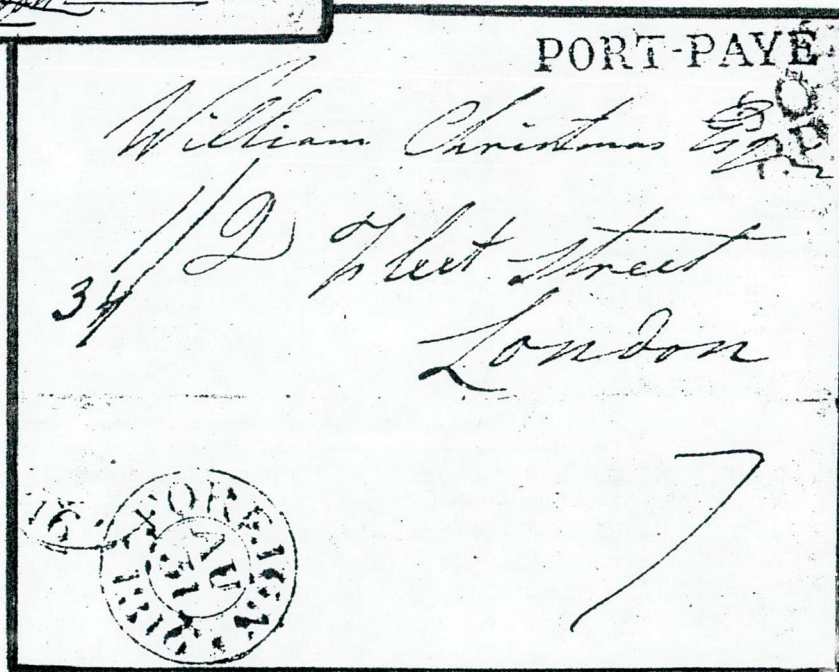 PORT-PAYÉ
William Christmas Esq.
1/2 Fleet Street
34
London
7
FOREIGN
AU